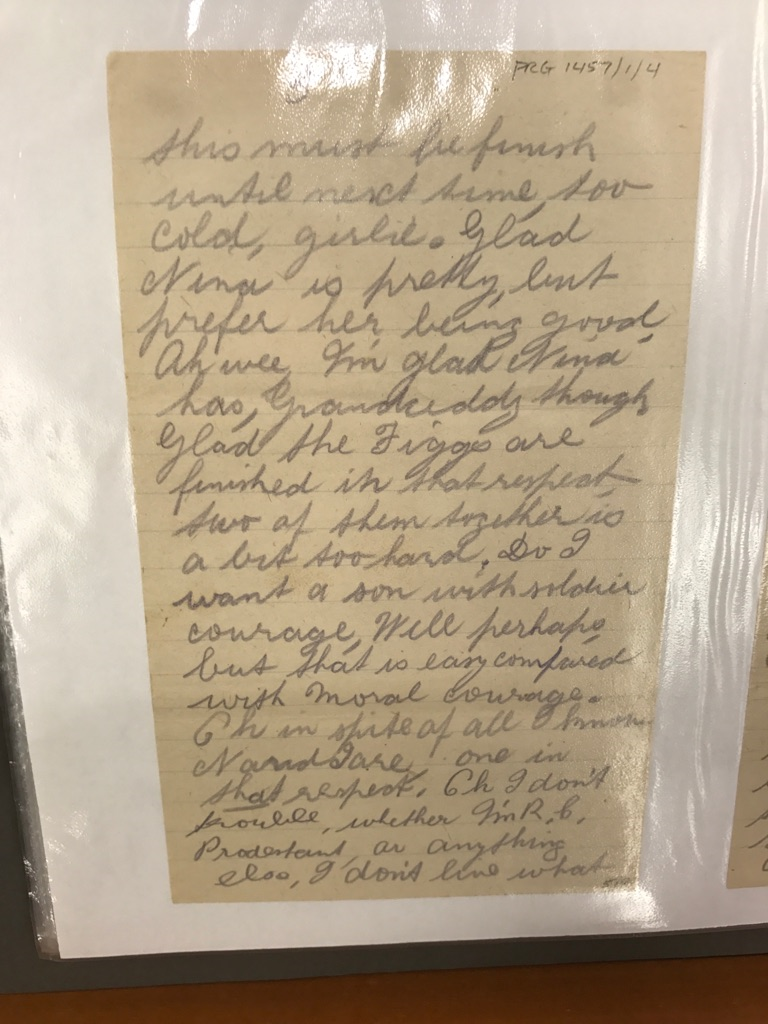 PRG 1457/1/4
this must be finish
until next time, too
cold, girlie. Glad
Nina is pretty, but
prefer her being good,
Ah wee, I'm glad Nina
has, Grandkiddy though
Glad the Figgs are
finished in that respect
two of them together is
a bit too hard. Do I
want a son with soldier
courage, Well perhaps,
but that is easy compared
with moral courage.
Eh in spite of all I know
N and I are, one in
that respect. Eh I don't
trouble, whether I'm R. C.
Prodestant, or anything
else, I don't live what